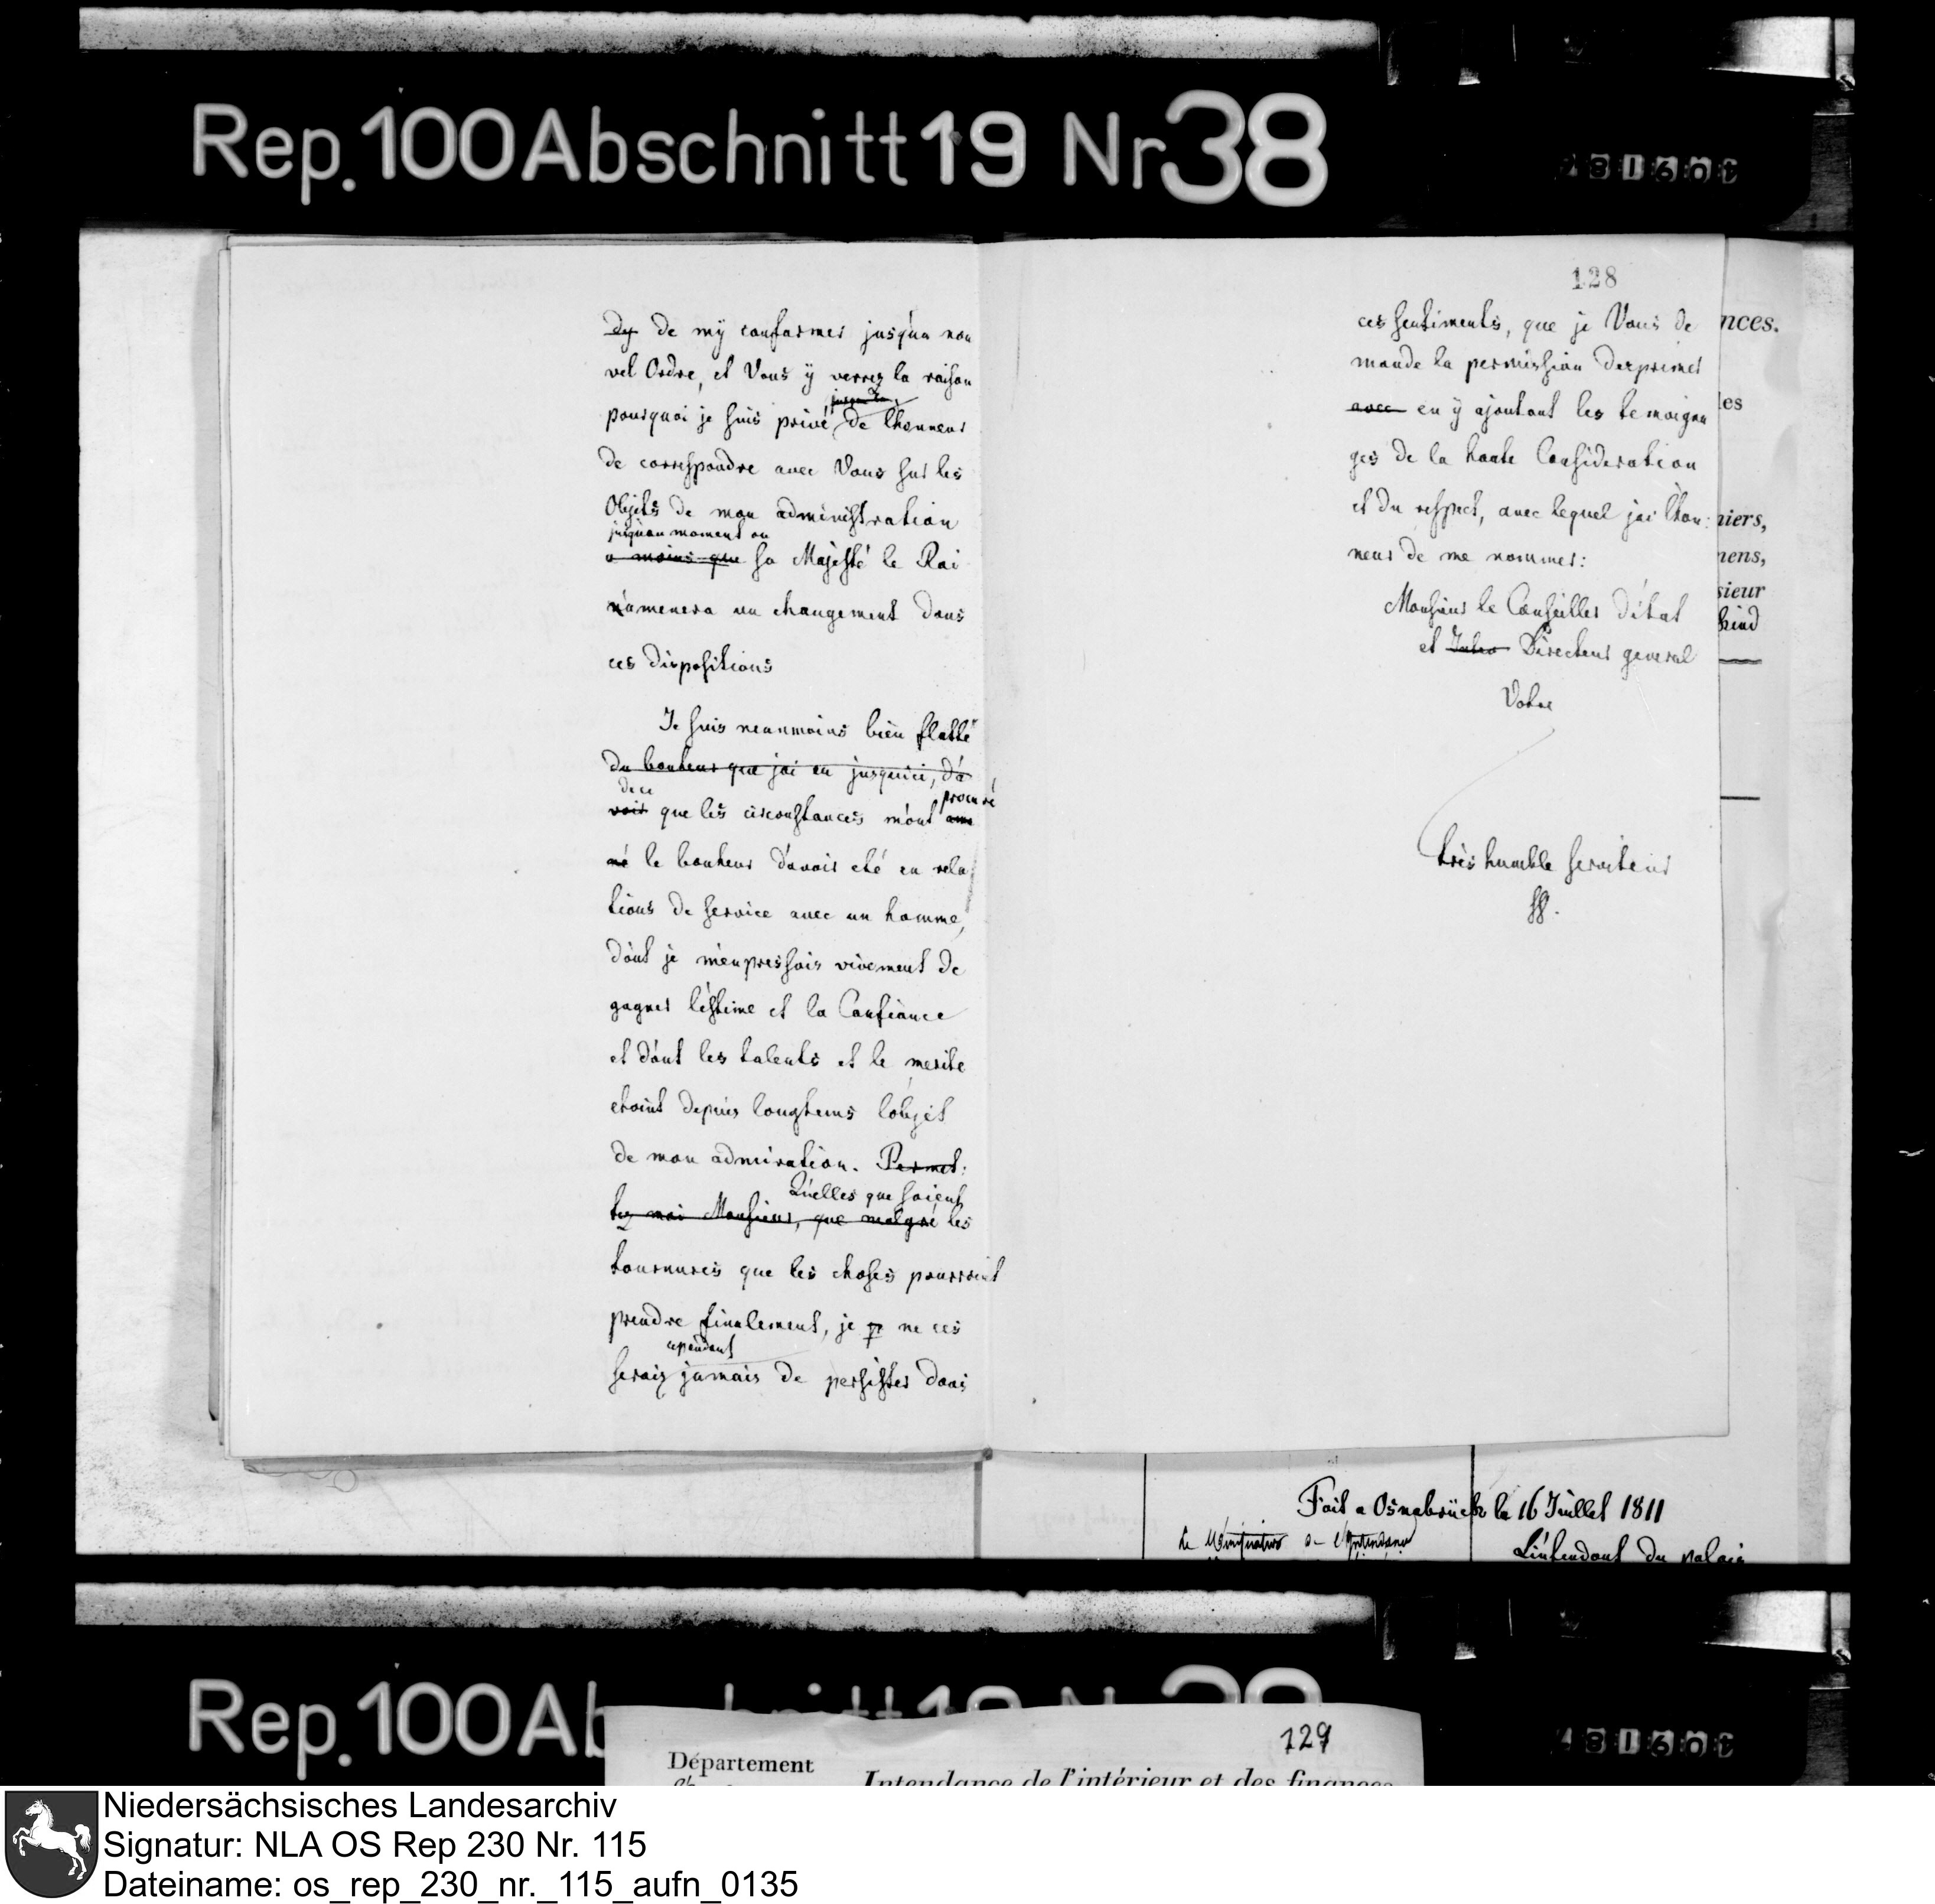 Rep. 100 Abschnitt 19 Nr 38
dy de mÿ conformer jusqu'a nou
vel Ordre, et Vous ÿ verrez la raison
pourquoi je suis privé de lhonneur
de correspondre avec Vous sur les
Objets de mon administration
jusqu'au moment ou
a moins que Sa Majésté le Roi
n'amenera un changement dans
ces dispositions
Je suis neanmoins bien flatté
du bonheur que jai eu jusqu'ici, d'a
de ce procuré
voir que les circonstances m'ont ame
né le bonheur d'avoir eté en rela
tions de service avec un homme,
dont je m'enpressois vivement de
gagner l'éstime et la Confiance
et dont les talents et le merite
etoint depuis longtems l'objet
de mon admiration. Permet:
Quelles que soient
tez moi Monsieur, que malgré les
tournures que les choses pourroint
prendre finalement, je p ne ces
cependant
serois jamais de persister dans
128
ces sentiments, que je Vous de
mande la permission d'exprimer
avec en ÿ ajoutant les temoigna
ges de la haute Consideration
et du respect, avec lequel jai l'hon:
neur de me nommer:
Monsieur le Conseiller d'état
et Directeur general
Votre
très humble serviteur
nces.
les
niers,
nens,
sieur
Fait a Osnabrück le 16 Juillet 1811
L'intendant du palais
Rep. 100 Ab
129
Département
Intendance de l'intérieur et des finances
Niedersächsisches Landesarchiv
Signatur: NLA OS Rep 230 Nr. 115
Dateiname: os_rep_230_nr._115_aufn_0135